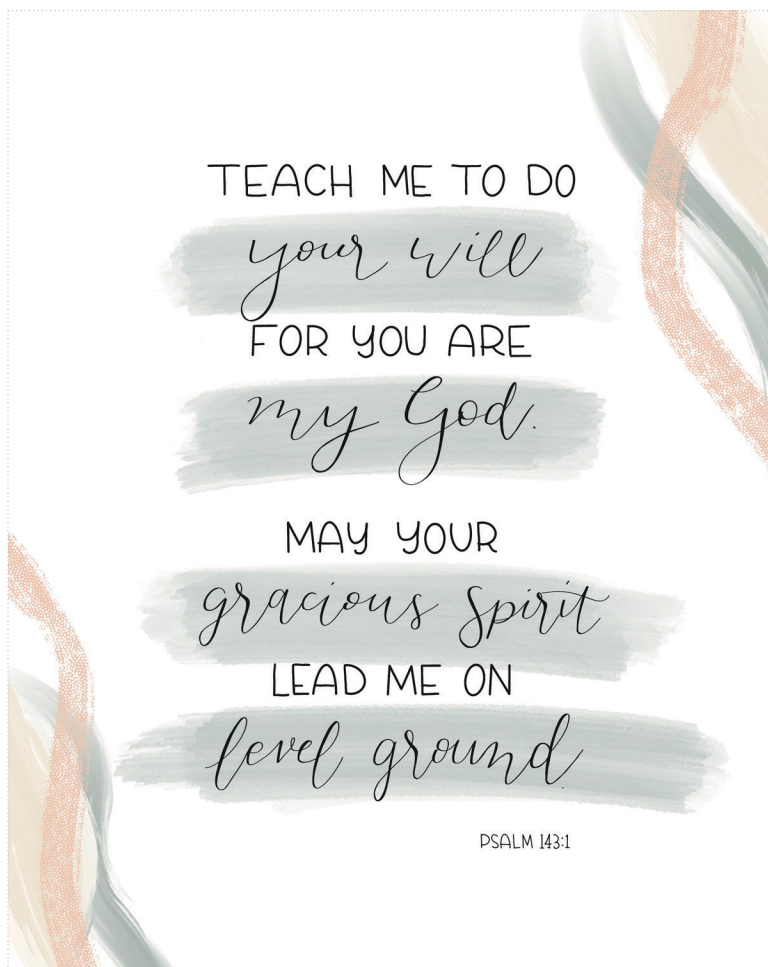 TEACH ME TO DO
your will
FOR YOU ARE
my God.
MAY YOUR
gracious Spirit
LEAD ME ON
level ground.
PSALM 143:1